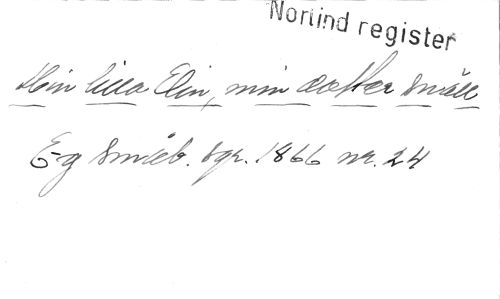 Norlind register
Min lilla Elin, min dotter snäll
E-g Småb. spr. 1866 nr. 24